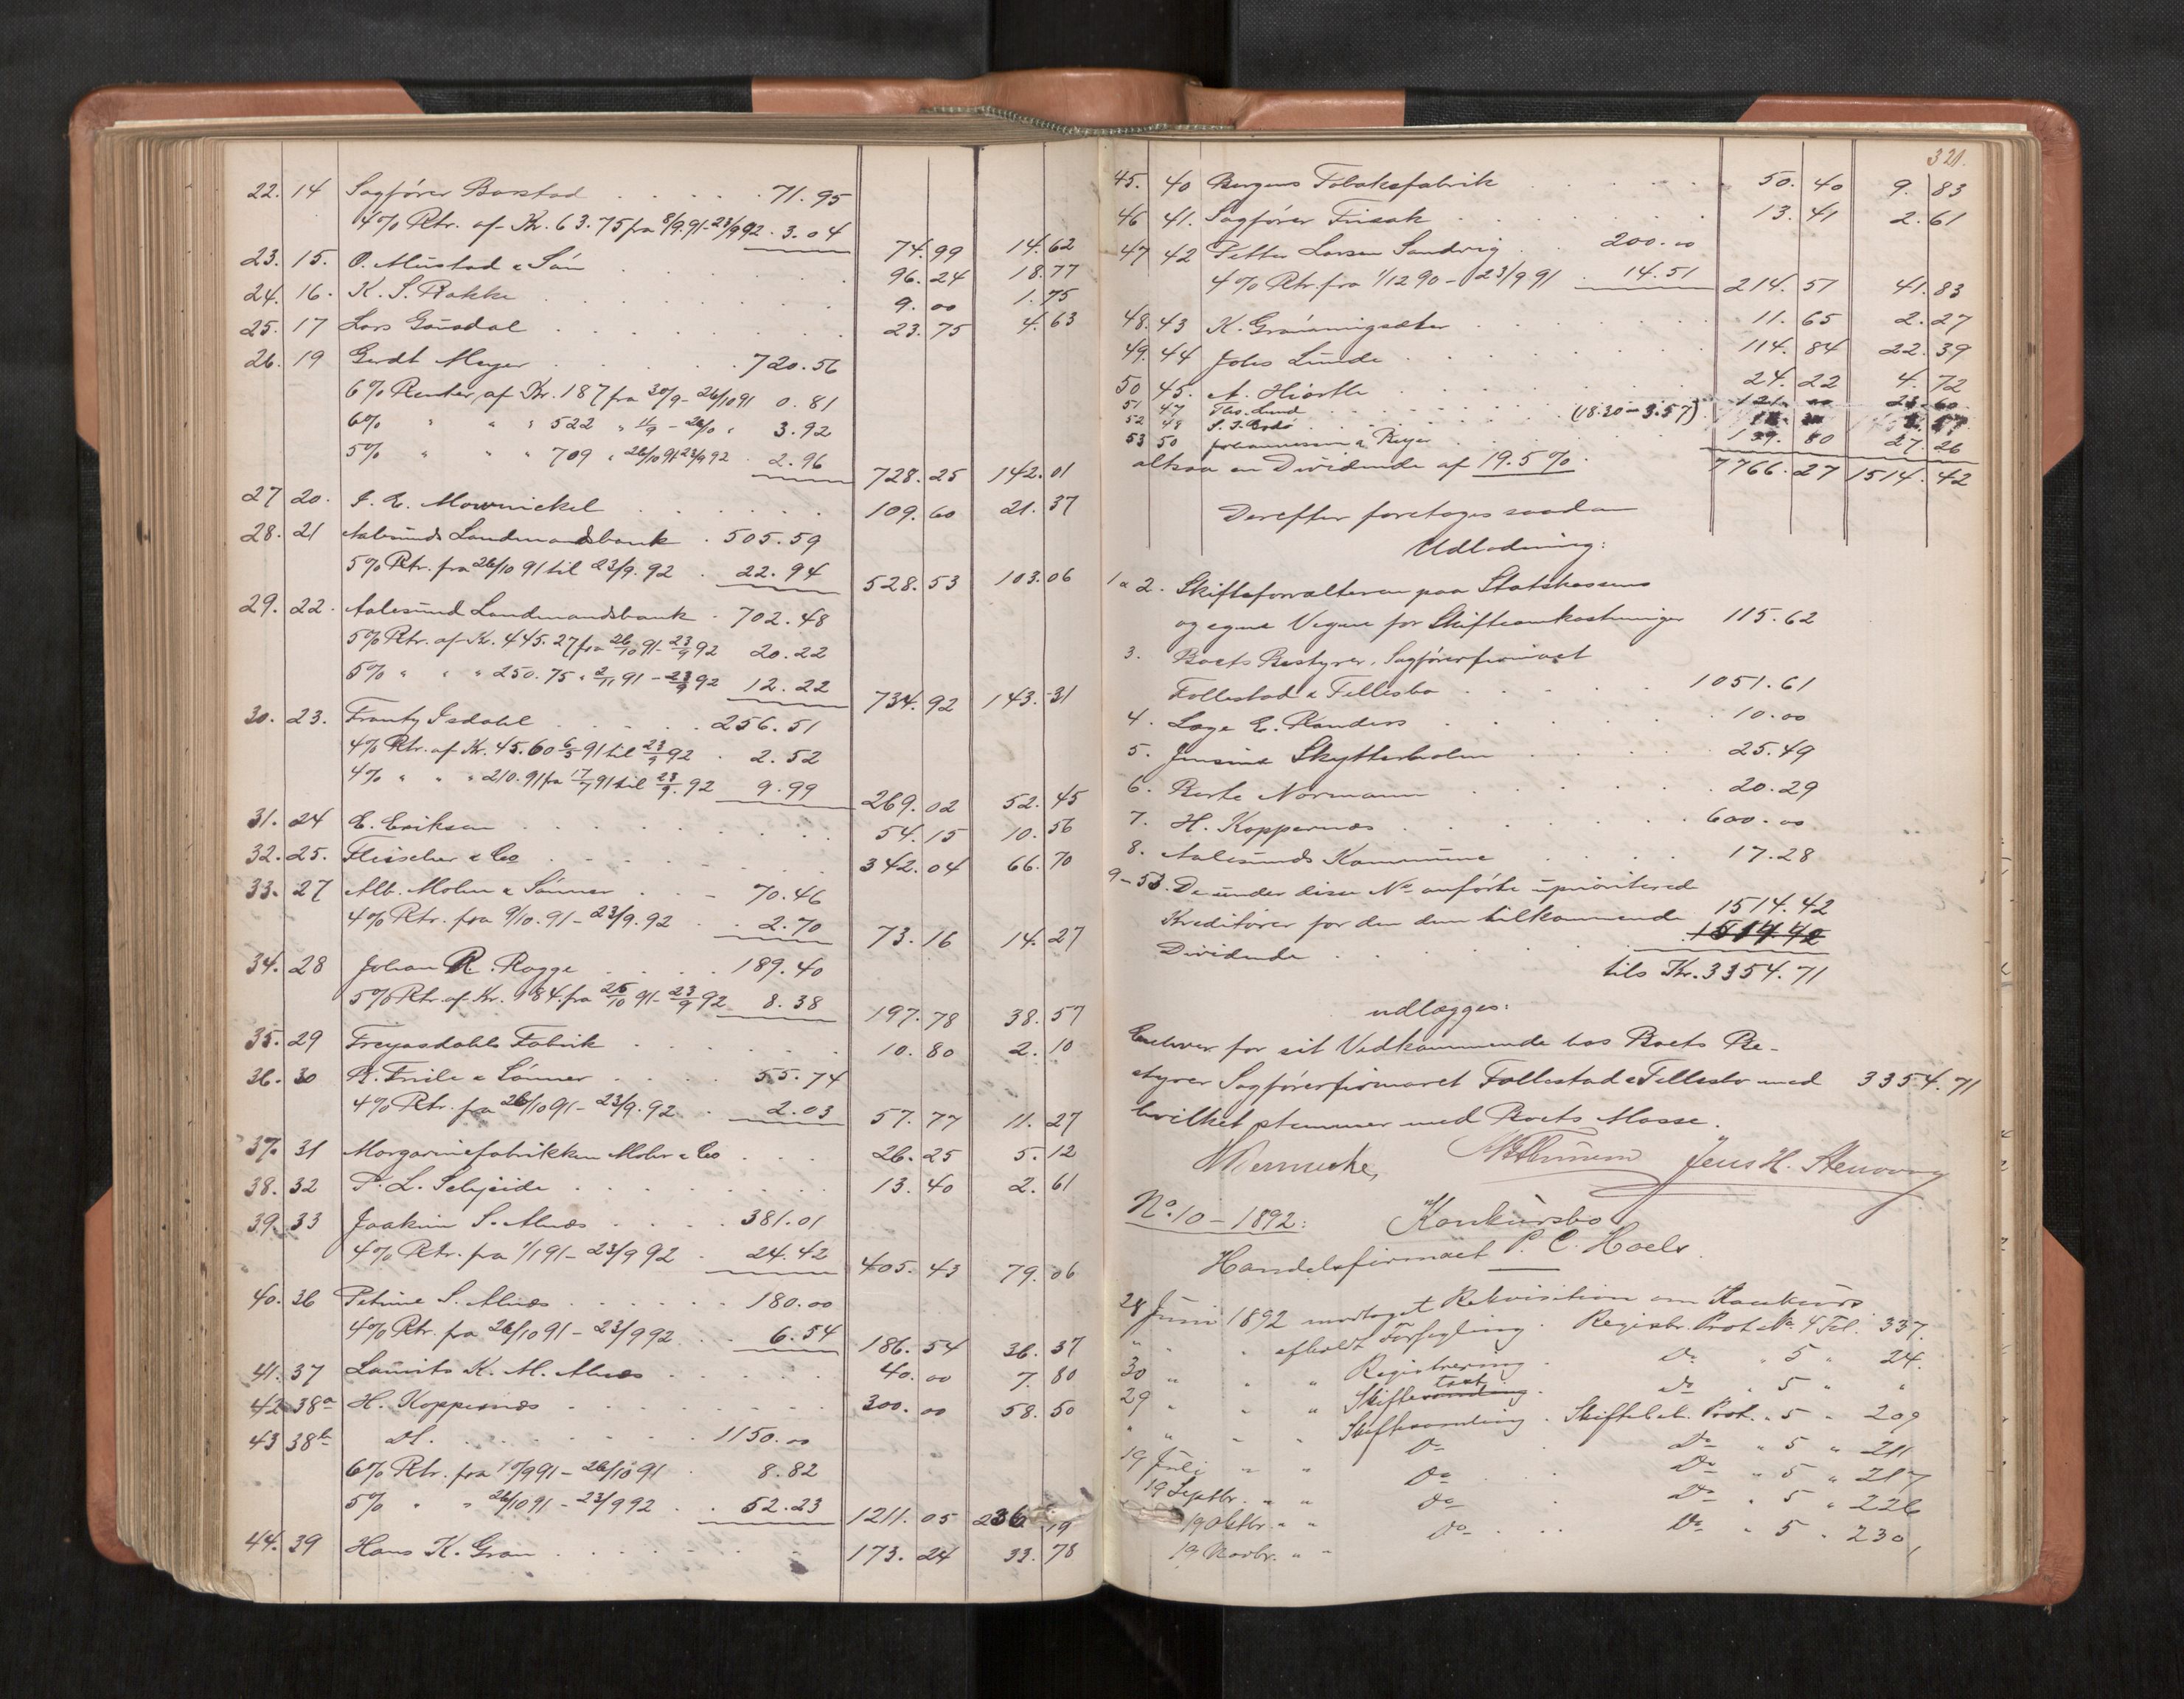 22. 14 Sagfører Barstad . . . . . 71.95
4% Rtr. af Kr. 63.75 fra 8/9.91-23/9 92 . 3.04 74.99 14.62
23. 15. O. Mustad & Søn . . . 96.24 18.77
24. 16. K. S. Rakke . . . 9.00 1.75
25. 17 Lars Gausdal . . . 23.75 4.63
26. 19 Gerdt Meyer . . . 720.56
6% Renter af Kr. 187 fra 30/9 - 26/10 91 0.81
6% " " " 522 " 11/9 - 26/10 " 3.92
5% " " " 709 " 26/10 91 23/9 92 . 2.96 728.25 142.01
27 20. J. E. Mowinckel . . . 109.60 21.37
28. 21 Aalesunds Landmandsbank . 505.59
5% Rtr. fra 26/10 91 til 23/9. 92 . 22.94 528.53 103.06
29. 22. Aalesund Landmandsbank . 702.48
5% Rtr. af Kr. 445.27 fra 26/10 91 - 23/9 92 20.22
5% " " " 250.75 " 2/11 91 - 23/9 92 12.22 734.92 143.31
30. 23. Frantz Isdahl . . . 256.51
4% Rtr. af Kr. 45.60 6/5 91 til 23/9 92 . 2.52
4% " " " 210.91 fra 17/7 91 til 23/9. 92 9.99 269.02 52.45
31. 24 E. Eriksen . . . 54.15 10.56
32. 25. Fleischer & Co . . . 342.04 66.70
33. 27 Alb. Mohn & Sønner . . 70.46
4% Rtr. fra 9/10. 91 - 23/9. 92 . . 2.70 73.16 14.27
34. 28 Johan R. Rogge . . . 189.40
5% Rtr. af Kr. 184. fra 26/10 91 - 23/9 92 8.38 197.78 38.57
35. 29 Frejasdahls Fabrik . . . 10.80 2.10
36. 30 R. Friele & Sønner . . . 55.74
4% Rtr. fra 26/10 91 - 23/9. 92 . . 2.03 57.77 11.27
37. 31 Margarinefabrikken Mohr & Co . . . 26.25 5.12
38. 32 P. L. Schjeide . . . 13.40 2.61
39. 33 Joakim S. Alnæs . . . 381.01
4% Rtr. fra 1/1 91 - 23/9 92 . 24.42 405.43 79.06
40. 36 Petrine S. Alnæs . . . 180.00
4% Rtr. fra 26/10 91 - 23/9 92 . . 6.54 186.54 36.37
41. 37 Laurits K. M. Alnæs . . . 40.00 7.80
42 38a H. Koppernæs . . . 300.00 58.50
43 38b Dt. . . . 1150.00
6% Rtr. fra 10/9 91 - 26/10 91 . 8.82
5% " " 26/10 91 - 23/9 92 . . 52.23 1211.05 236.19
44. 39 Hans K. Gran . . . 173.24 33.78
321.
45. 40 Bergens Tobaksfabrik . . . 50.40 9.83
46 41. Sagfører Frisak . . . 13.41 2.61
47 42 Petter Larsen Sandvig . . 200.00
4% Rtr. fra 1/12 90 - 23/9 91 . 14.51 214.57 41.83
48. 43 K. Grønningsæter . . . 11.65 2.27
49. 44 Johs Lunde . . . 114.84 22.39
50 45. A. Hiorth . . . 24.22 4.72
51 47 Ths. Lund . . . 121.00 23.60
52 48 (18.30 - 3.57)
53 50 Johannessen & . . . 139.80 27.26
altsaa en Dividende af 19.5% . 7766.27 1514.42
Derefter foretages saadan
Udlodning:
1 & 2. Skifteforvalteren paa Statskassens
og egne Vegne for Skifteomkostninger 115.62
3. Boets Bestyrer, Sagførerfirmaet
Follestad & Fellesbø . . . 1051.61
4. Læge E. Randers . . . 10.00
5. Jensine Skytterholm . . . 25.49
6. Berte Normann . . . 20.29
7. H. Koppernæs . . . 600.00
8. Aalesunds Kommune . . . 17.28
9-53. De under disse No anførte uprioriterede
Kreditorer for den dem tilkommende 1514.42
Dividende . . . 1514.42
tils Kr. 3354.71
udlægges:
Enhver for sit Vedkommende hos Boets Be-
styrer Sagførerfirmaet Follestad & Fellesbø med 3354.71
hvilket stemmer med Boets Masse.
Jens H. Stenvaag
No. 10 - 1892: Konkursbo
Handelsfirmaet P. C. Hoels.
28 Juni 1892 modtaget Rekvisition om Konkurs
" " " afholdt Forsegling . Registr. Prot. No 4 Fol. 337.
30 " " " Registrering . Do " 5 " 24.
29 " " " Skiftesamling . Do " 5 " "
" " " " Skiftesamling . Skiftebeh. Prot. " 5 " 209
19 Juli " " Do . Do " 5 " 211
19 Septbr. " " Do . . Do " 5 " 217
19 Oktbr. " " Do . Do " 5 " 226
19 Novbr. " " Do . . . Do " 5 " 230